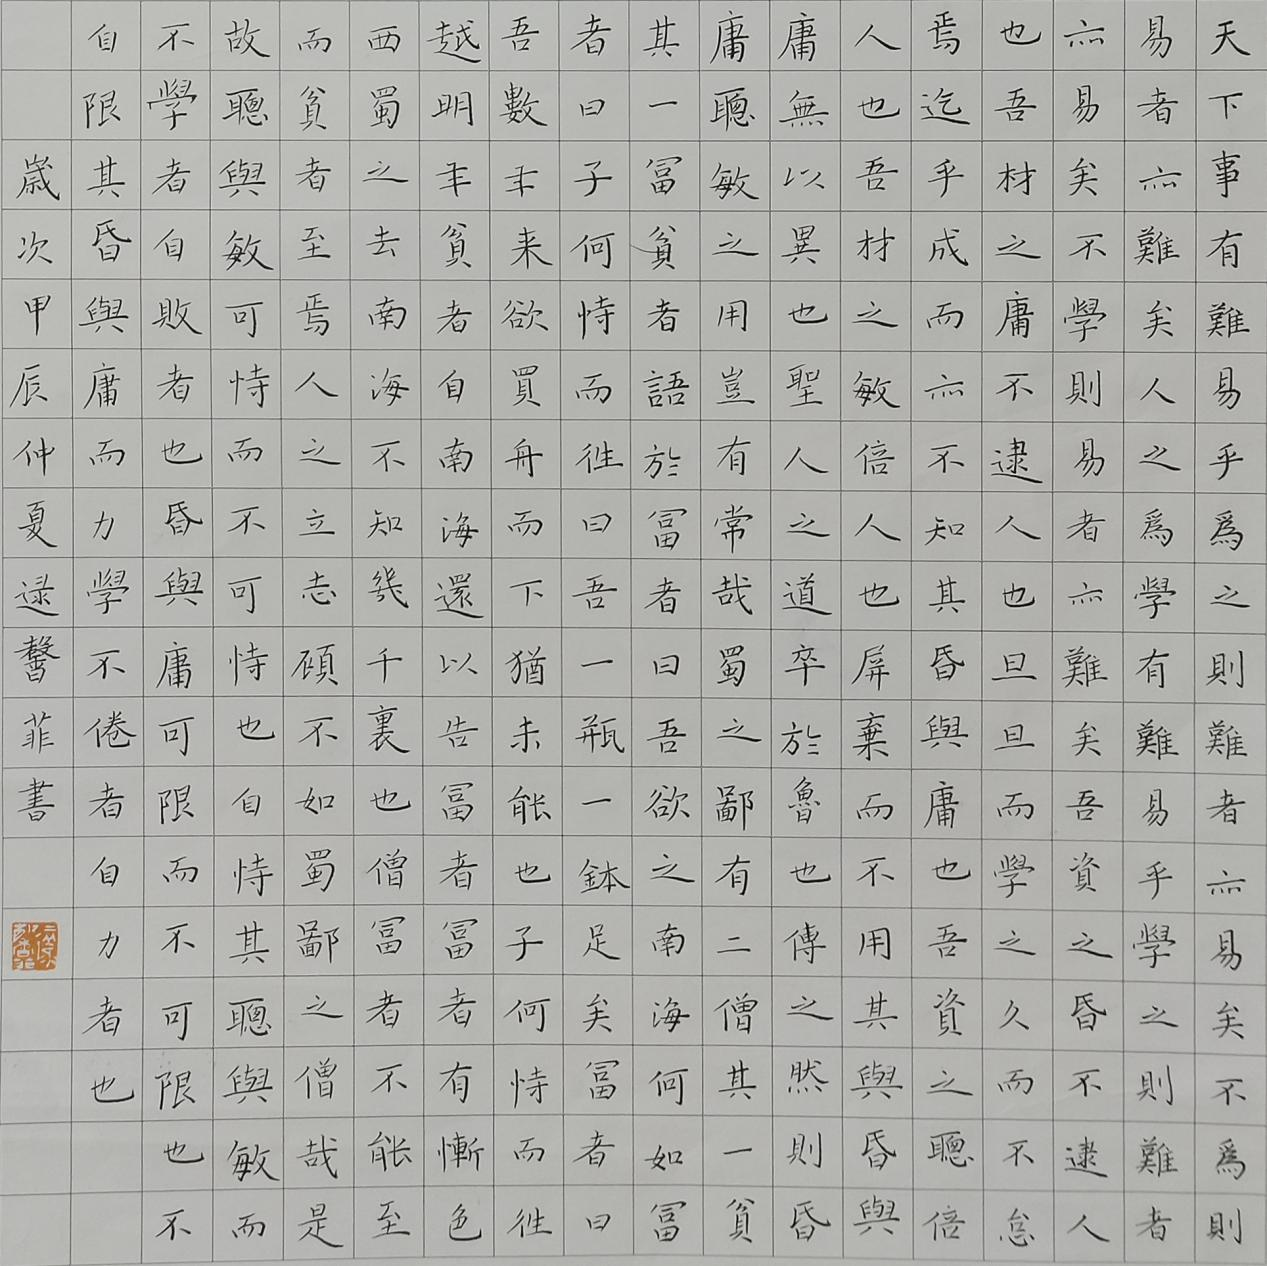 天下事有難易乎爲之則難者亦易矣不爲則
易者亦難矣人之爲學有難易乎學之則難者
亦易矣不學則易者亦難矣吾資之昏不逮人
也吾材之庸不逮人也旦旦而學之久而不怠
焉迄乎成而亦不知其昏與庸也吾資之聰倍
人也吾材之敏倍人也屏棄而不用其與昏與
庸無以異也聖人之道卒於魯也傳之然則昏
庸聰敏之用豈有常哉蜀之鄙有二僧其一貧
其一冨貧者語於冨者曰吾欲之南海何如冨
者曰子何恃而往曰吾一瓶一鉢足矣冨者曰
吾數年来欲買舟而下猶未能也子何恃而往
越明年貧者自南海還以告冨者冨者有慚色
西蜀之去南海不知幾千裏也僧冨者不能至
而貧者至焉人之立志顧不如蜀鄙之僧哉是
故聰與敏可恃而不可恃也自恃其聰與敏而
不學者自敗者也昏與庸可限而不可限也不
自限其昏與庸而力學不倦者自力者也
歲次甲辰仲夏逯馨菲書